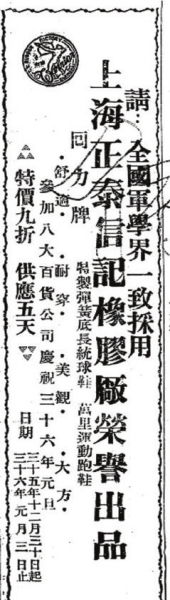 請‥全國軍學界一致採用
上海正泰信記橡膠廠榮譽出品
回力牌
特製彈簧底長統球鞋 萬里運動跑鞋
·舒適·耐穿·美觀·大方·
參加八大百貨公司慶祝三十六年元旦
特價九折 供應五天
日期 三十五年十二月三十日起
三十六年元月三日止